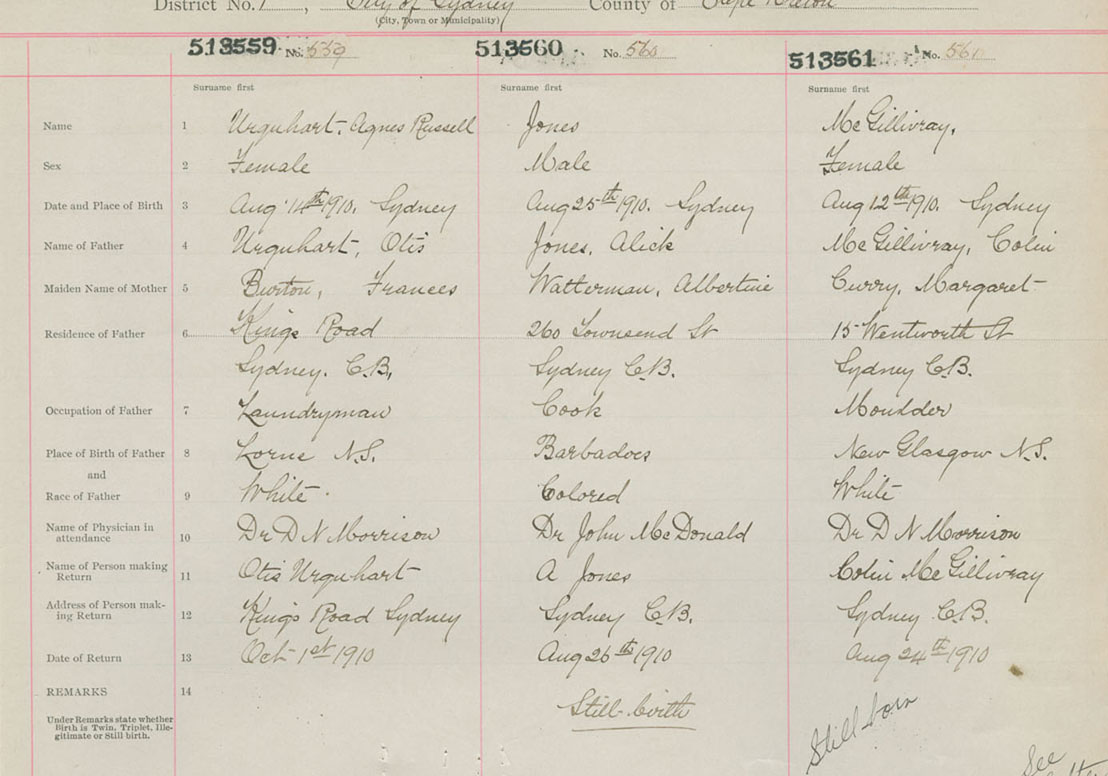 District No. 1, City of Sydney County of Cape Breton
(City, Town or Municipality)
513559 No. 559 513560 No. 560 513561 No. 561
Surname first Surname first Surname first
Name 1 Urquhart, Agnes Russell Jones McGillivray,
Sex 2 Female Male Female
Date and Place of Birth 3 Aug 14th 1910. Sydney Aug 25th 1910. Sydney Aug 12th 1910. Sydney
Name of Father 4 Urquhart, Otis Jones, Alick McGillivray, Colin
Maiden Name of Mother 5 Burton, Frances Watterman, Albertine Curry, Margaret
Residence of Father 6 Kings Road 260 Townsend St 15 Wentworth St
Sydney. C.B, Sydney C.B. Sydney C.B.
Occupation of Father 7 Laundryman Cook Moulder
Place of Birth of Father 8 Lorne N.S. Barbadoes New Glasgow N.S.
and
Race of Father 9 White Colored White
Name of Physician in
attendance 10 Dr D N Morrison Dr John McDonald Dr D N Morrison
Name of Person making
Return 11 Otis Urquhart A Jones Colin McGillivray
Address of Person mak-
ing Return 12 King's Road Sydney Sydney C.B. Sydney C.B.
Date of Return 13 Oct 1st 1910 Aug 26th 1910 Aug 24th 1910
REMARKS 14 Still-birth Still-born
Under Remarks state whether
Birth is Twin, Triplet, Ille-
gitimate or Still birth.
See